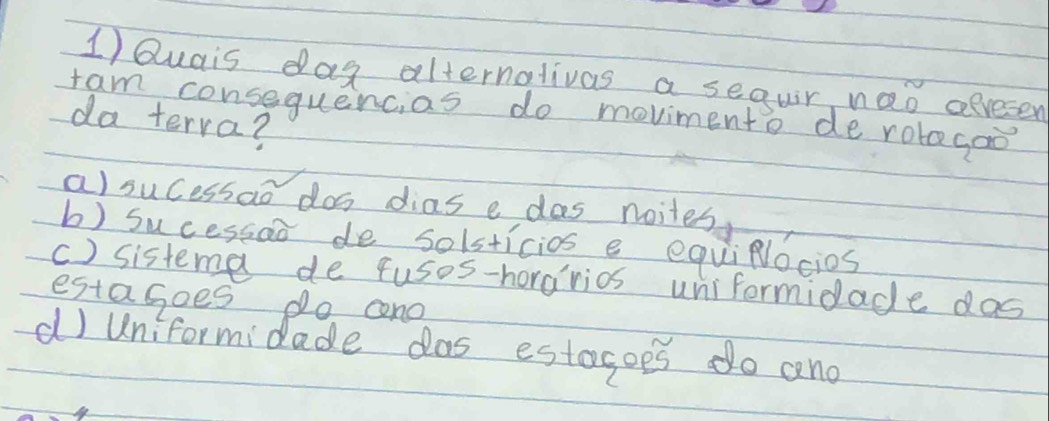 1) Quais das alternativas a seguir, não apresen
tam consequencias do movimento de rotação
da terra?
a) sucessão dos dias e das noites,
b) sucessão de solstícios e equinócios
c) sistema de fusos-horários uniformidade das
estações do ano
d) Uniformidade das estações do ano